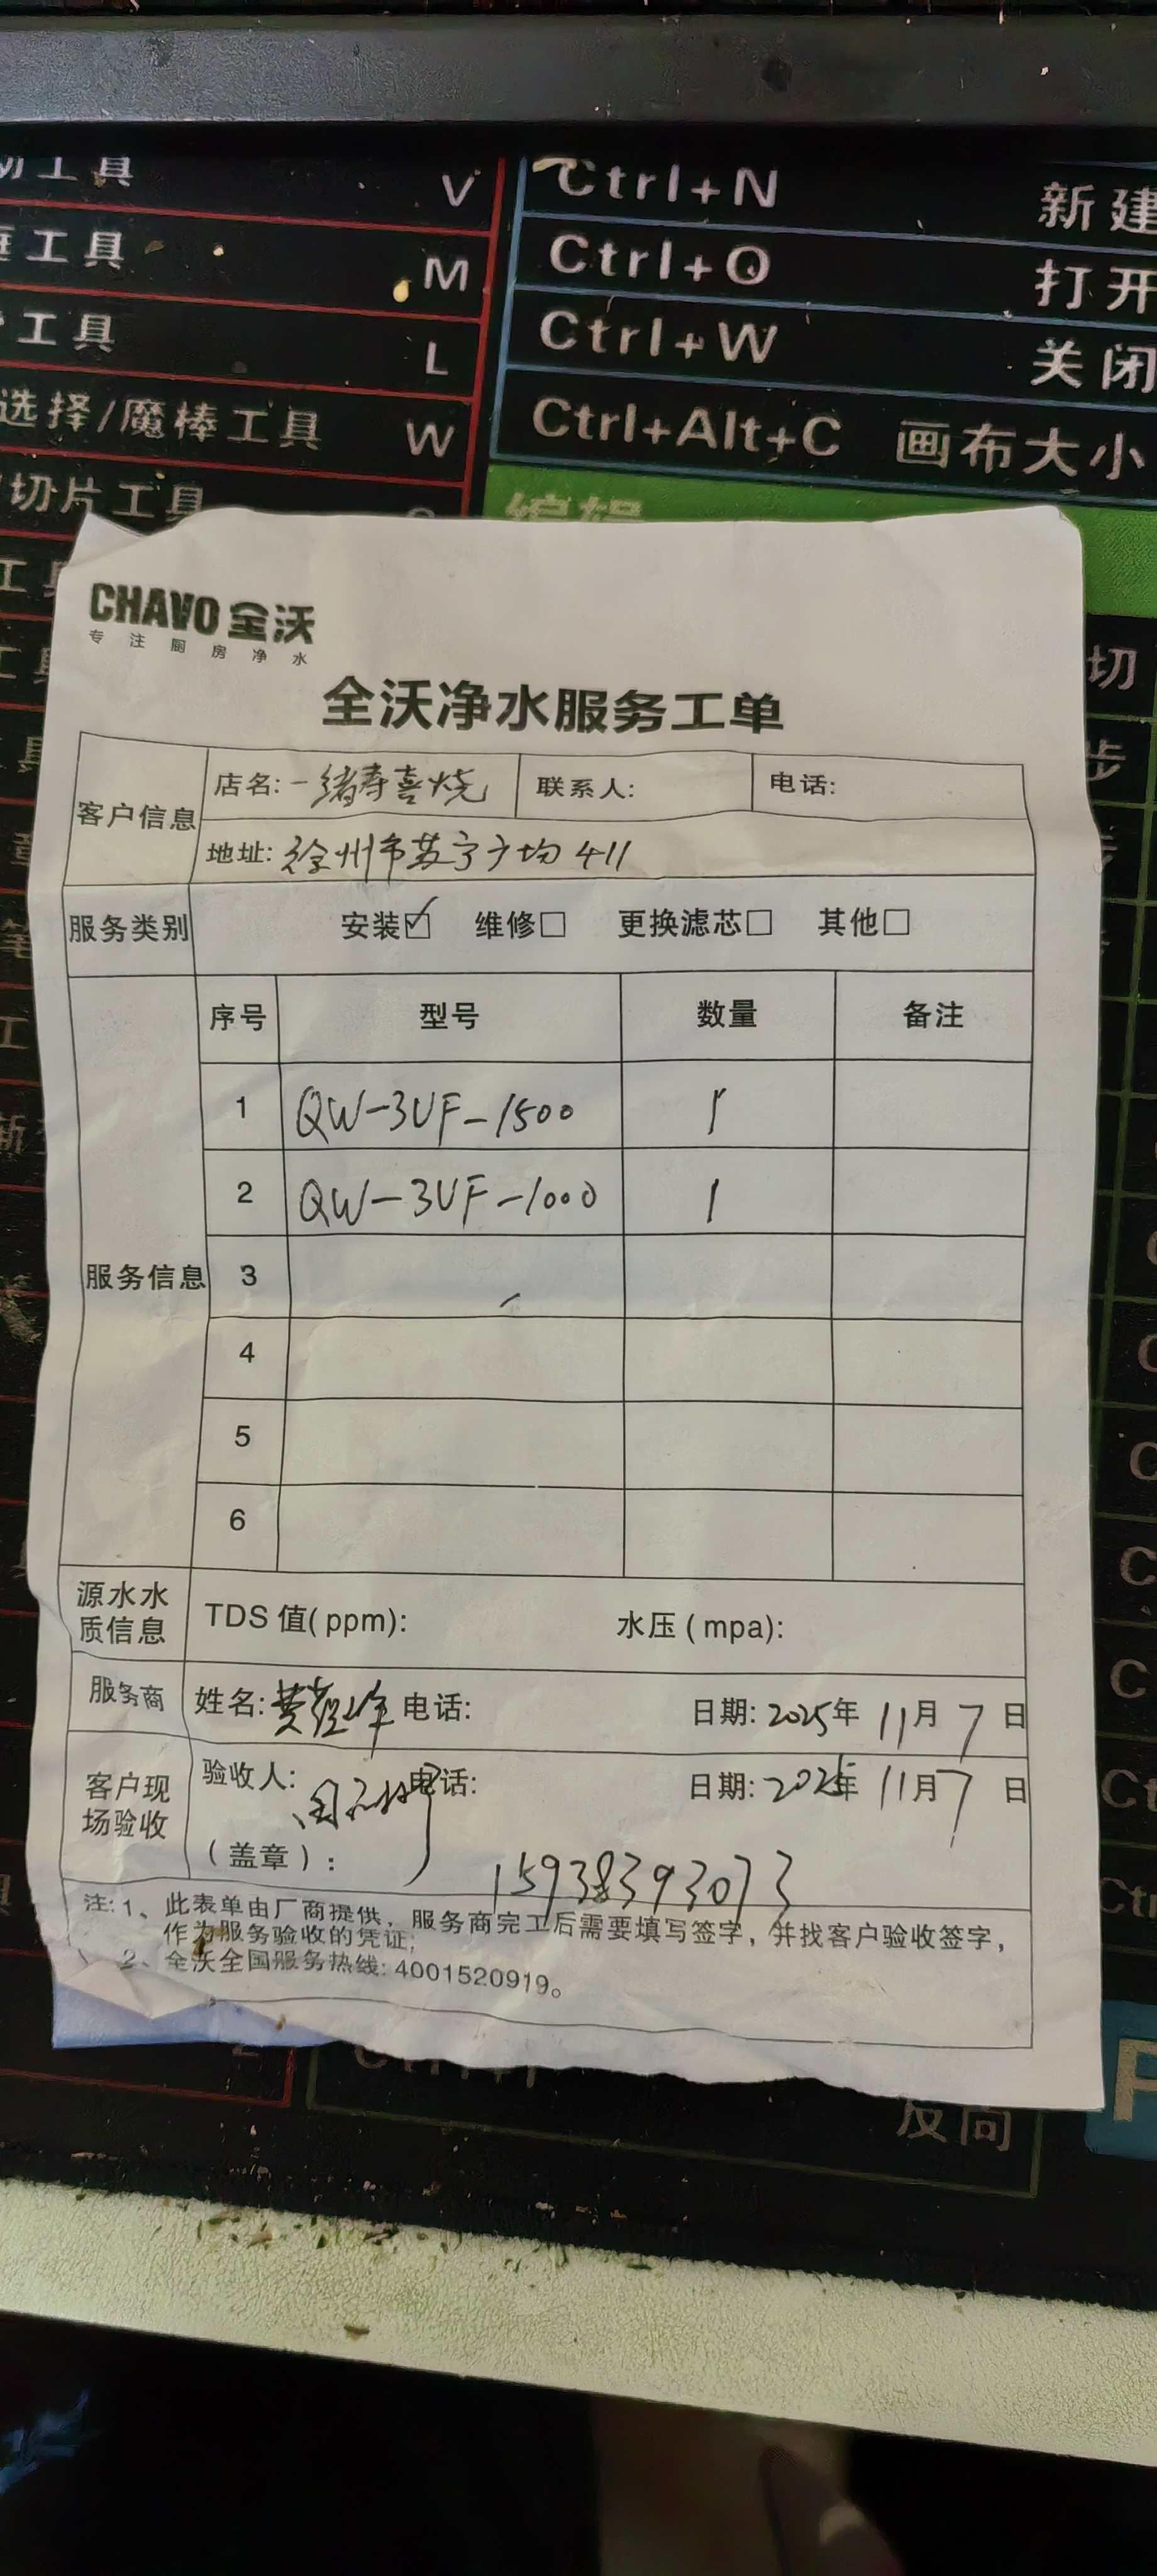 工具 V
工具 M
工具 L
选择/魔棒工具 W
切片工具
Ctrl+N 新建
Ctrl+O 打开
Ctrl+W 关闭
Ctrl+Alt+C 画布大小
编辑
CHAVO 全沃
专注厨房净水
全沃净水服务工单
客户信息 店名:一绪寿喜烧 联系人: 电话:
地址:徐州市苏宁广场 411
服务类别 安装☑ 维修□ 更换滤芯□ 其他□
服务信息
序号 型号 数量 备注
1 QW-3UF-1500 1
2 QW-3UF-1000 1
3
4
5
6
源水水质信息 TDS 值(ppm): 水压(mpa):
服务商 姓名: 电话: 日期:2025年11月7日
客户现场验收 验收人: 电话: 日期:2025年11月7日
(盖章): 15938393073
注:1、此表单由厂商提供，服务商完工后需要填写签字，并找客户验收签字，
作为服务验收的凭证;
2、全沃全国服务热线:4001520919。
反向